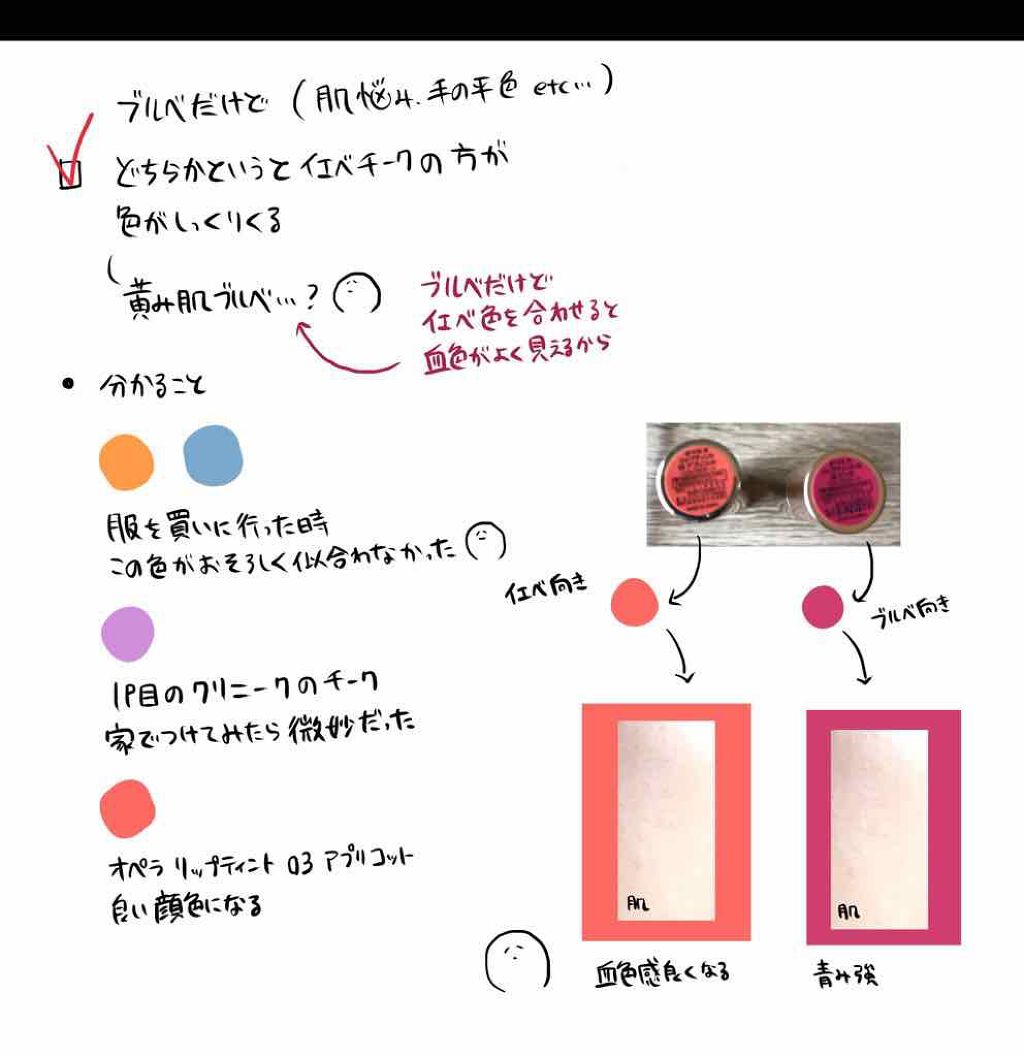 ブルベだけど（肌悩み.手の平色 etc…）
どちらかというとイエベチークの方が
色がしっくりくる
黄み肌ブルベ…？
ブルベだけど
イエベ色を合わせると
血色がよく見えるから
・分かること
服を買いに行った時
この色がおそろしく似合わなかった
1P目のクリニークのチーク
家でつけてみたら微妙だった
オペラ リップティント 03 アプリコット
良い顔色になる
イエベ向き
ブルベ向き
肌
肌
血色感良くなる
青み強